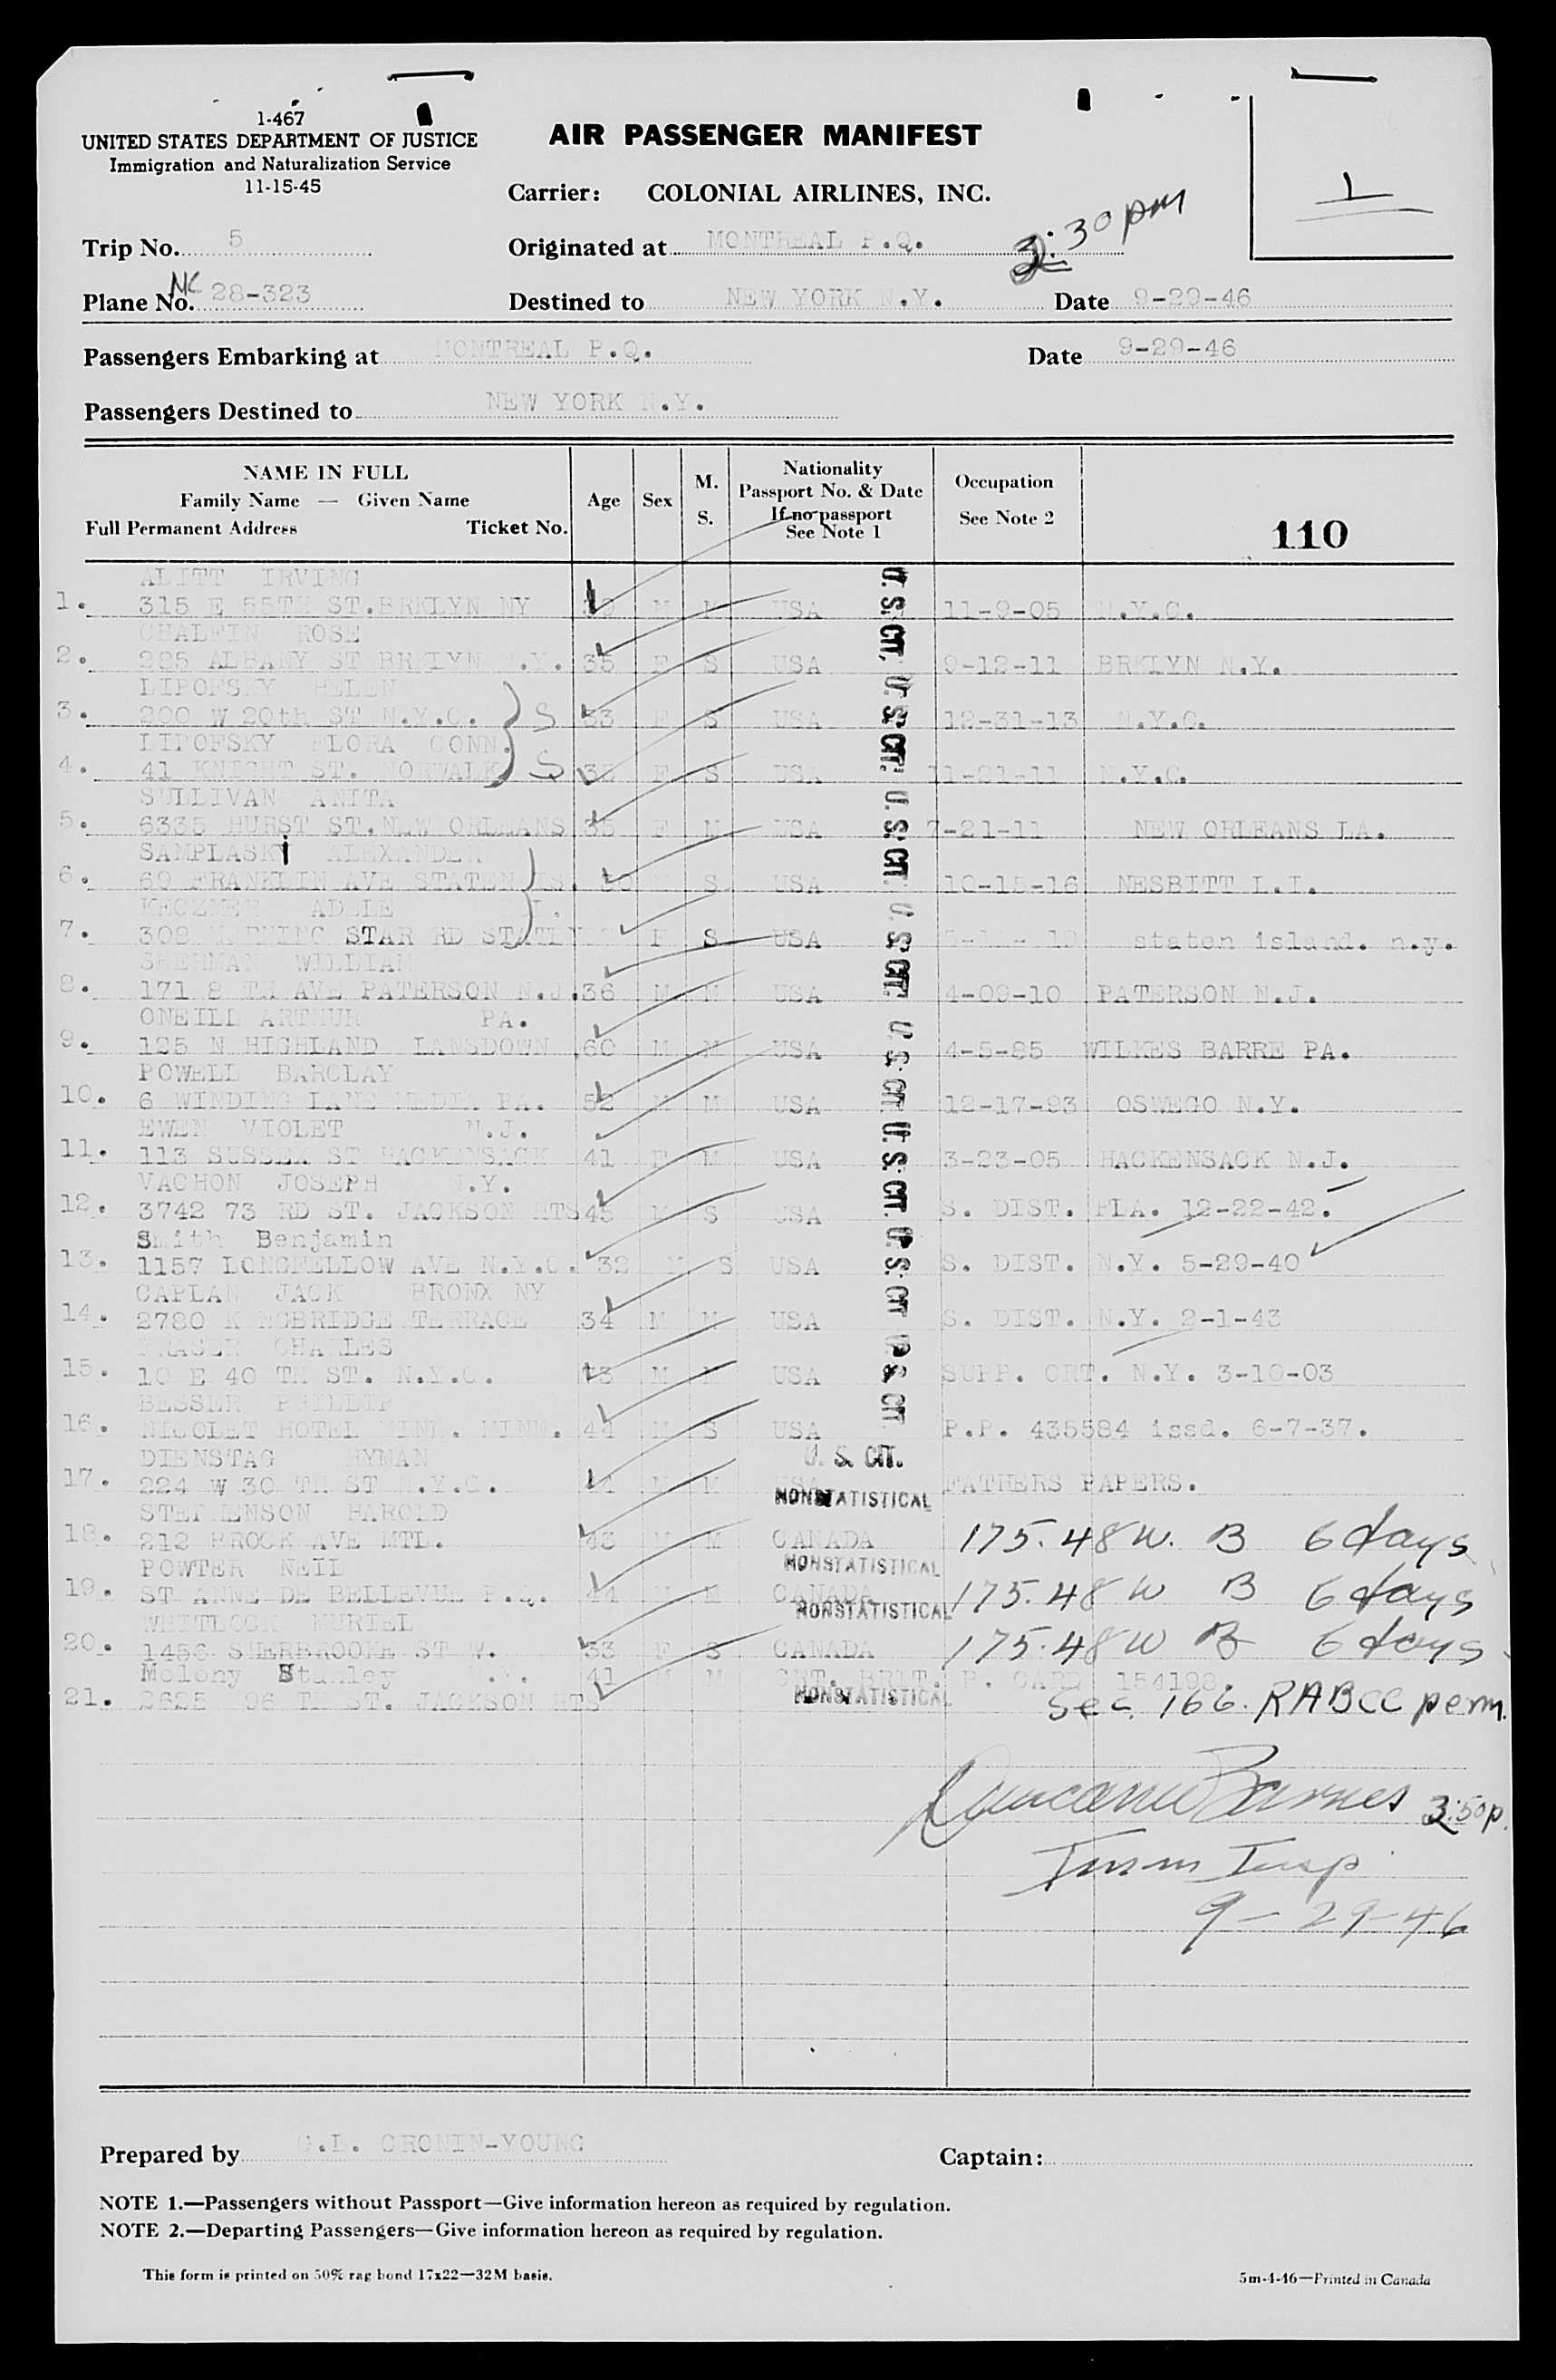 1-467
UNITED STATES DEPARTMENT OF JUSTICE
Immigration and Naturalization Service
11-15-45
AIR PASSENGER MANIFEST
Carrier: COLONIAL AIRLINES, INC.
1
3:30 pm
Trip No. 5
Originated at MONTREAL P.Q.
Plane No. NC 28-323
Destined to NEW YORK N.Y.
Date 9-29-46
Passengers Embarking at MONTREAL P.Q.
Date 9-29-46
Passengers Destined to NEW YORK N.Y.
NAME IN FULL
Family Name — Given Name
Full Permanent Address Ticket No.
Age
Sex
M.
S.
Nationality
Passport No. & Date
If no passport
See Note 1
Occupation
See Note 2
110
ALITT IRVING
1. 315 E 55TH ST.BRKLYN NY M M USA U. S. CIT. 11-9-05 N.Y.C.
CHALFIN ROSE
2. 285 ALBANY ST BRKLYN N.Y. 35 F S USA 9-12-11 BRKLYN N.Y.
LIPOFSKY HELEN
3. 200 W 20th ST N.Y.C. S 33 F S USA U. S. CIT. 12-31-13 N.Y.C.
LIPOFSKY FLORA CONN.
4. 41 KNIGHT ST. NORWALK S F S USA 11-21-11 N.Y.C.
SULLIVAN ANITA
5. 6335 HURST ST.NEW ORLEANS 35 F M USA U. S. CIT. 7-21-11 NEW ORLEANS LA.
SAMPLASKi ALEXANDER
6. 69 FRANKLIN AVE STATEN IS. S USA 10-15-16 NESBITT L.I.
ADELE
7. 308 MORNING STAR RD STATEN F S USA U. S. CIT. staten island. n.y.
SHERMAN WILLIAM
8. 171 8 TH AVE PATERSON N.J. 36 M M USA 4-09-10 PATERSON N.J.
ONEILL ARTHUR PA.
9. 125 N HIGHLAND LANSDOWN 60 M M USA U. S. CIT. 4-5-85 WILKES BARRE PA.
POWELL BARCLAY
10. 6 WINDING LANE MEDIA PA. 52 M M USA 12-17-93 OSWEGO N.Y.
EWEN VIOLET N.J.
11. 113 SUSSEX ST HACKENSACK 41 F M USA U. S. CIT. 3-23-05 HACKENSACK N.J.
VACHON JOSEPH N.Y.
12. 3742 73 RD ST. JACKSON HTS 45 M S USA S. DIST. FLA. 12-22-42.
Smith Benjamin
13. 1157 LONGFELLOW AVE N.Y.C. 32 M S USA U. S. CIT S. DIST. N.Y. 5-29-40
CAPLAN JACK BRONX NY
14. 2780 KINGBRIDGE TERRACE 34 M M USA S. DIST. N.Y. 2-1-43
FRASER CHARLES
15. 10 E 40 TH ST. N.Y.C. M USA U. S. CIT SUPP. CRT. N.Y. 3-10-03
BESSER PHILLIP
16. NICOLET HOTEL MINN. MINN. 44 M S USA P.P. 435584 issd. 6-7-37.
DIENSTAG HYMAN U. S. CIT.
17. 224 W 30 TH ST N.Y.C. M M USA FATHERS PAPERS.
STEPHENSON HAROLD NONSTATISTICAL
18. 212 BROCK AVE MTL. M M CANADA 175.48 W. B 6 days
POWTER NEIL NONSTATISTICAL
19. ST ANNE DE BELLEVUE P.Q. 44 M M CANADA 175.48 W B 6 days
WHITLOCK MURIEL NONSTATISTICAL
20. 1456 SHERBROOKE ST W. 33 F S CANADA 175.48 W B 6 days
Molony Stanley N.Y. 41 M M GRT. BRIT. P. CARD 154198
21. 96 TH ST. JACKSON HTS NONSTATISTICAL Sec. 166. RABCC perm.
Barnes 3:50 p.
Imm Insp
9-29-46
Prepared by G.L. CRONIN-YOUNG
Captain:
NOTE 1.—Passengers without Passport—Give information hereon as required by regulation.
NOTE 2.—Departing Passengers—Give information hereon as required by regulation.
This form is printed on 50% rag bond 17x22—32M basis.
5m-4-46—Printed in Canada